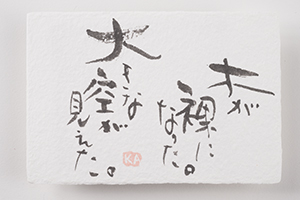 木が
裸に
なった。
大きな
空が
見えた。
KA